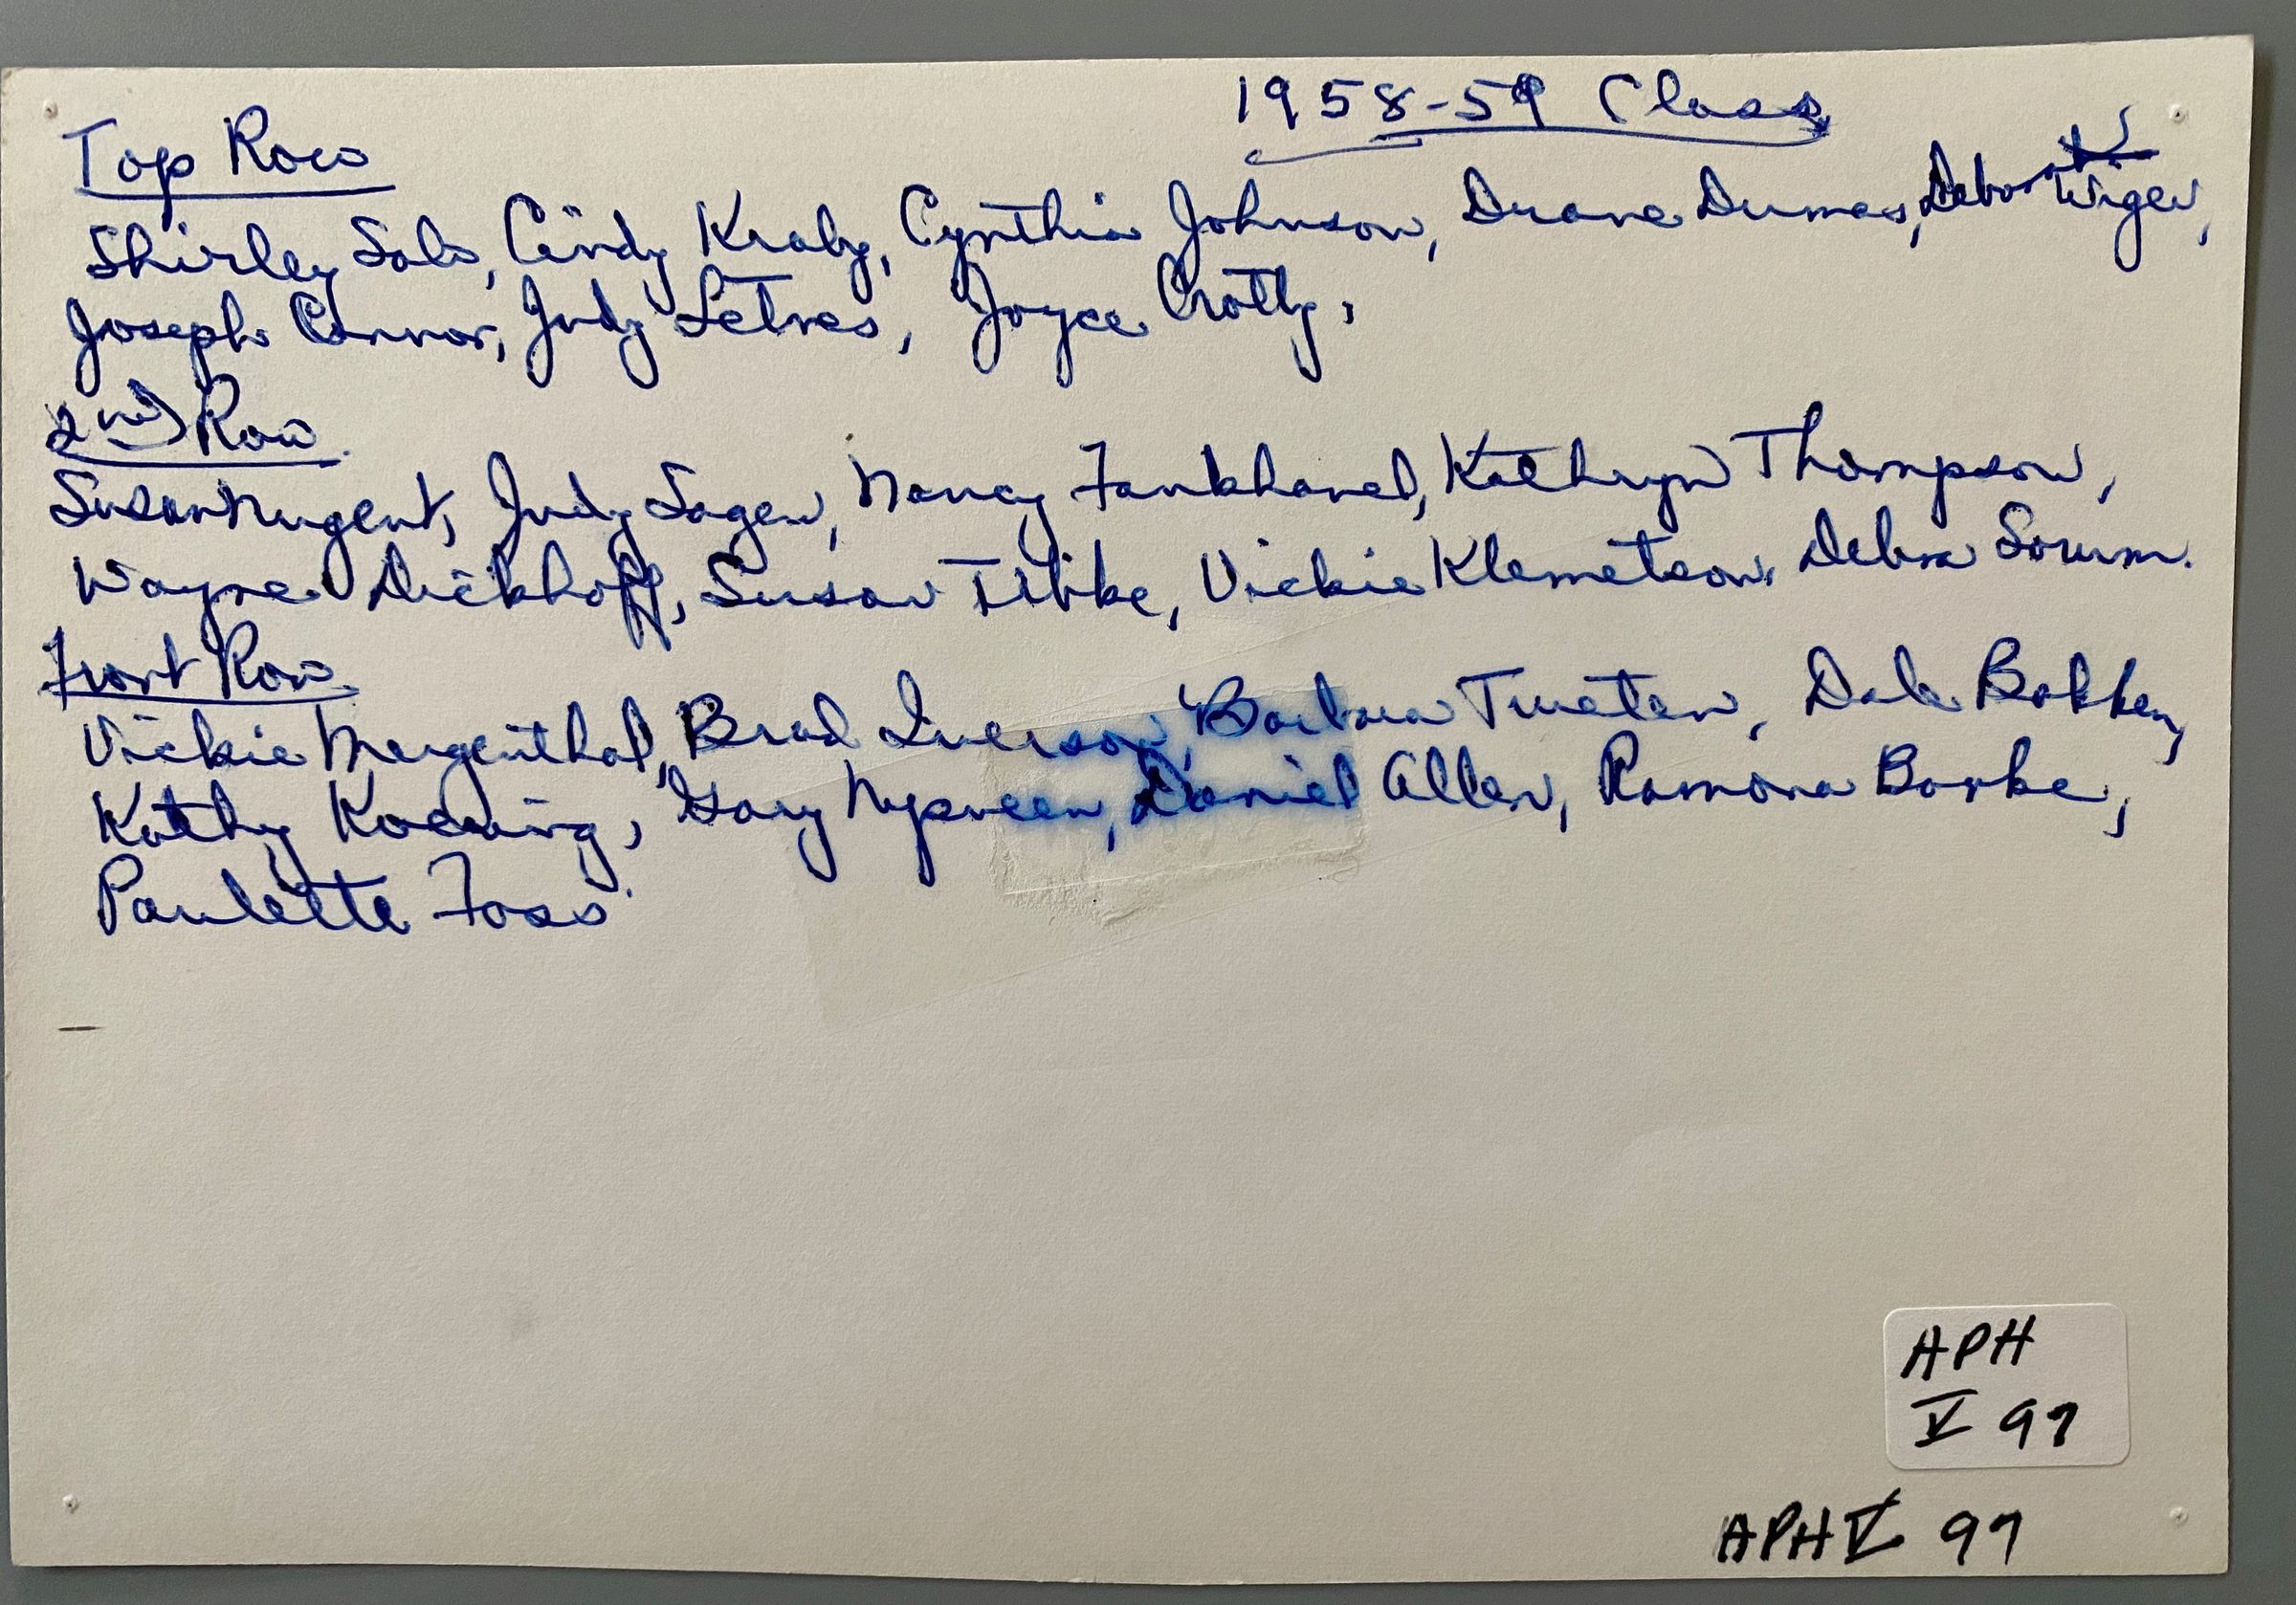 1958-59 Class
Top Row
Shirley Sals, Cindy Kraby, Cynthia Johnson, Duane Dumas, Wiger,
Joseph Connor, Judy Letnes, Joyce Crotty,
2nd Row
Susan Nugent, Judy Sagen, Nancy Fankhanel, Kathryn Thompson,
Wayne Dickhoff, Susan Tibke, Vickie Klemetson, Debra Sorum.
Front Row
Vickie Mergenthal, Brad Iverson, Barbara Tweten, Dale Bakken,
Kathy Koenig, Gary Nysveen, Daniel Allen, Ramona Barke,
Paulette Foss
APH
V 97
APH V 97